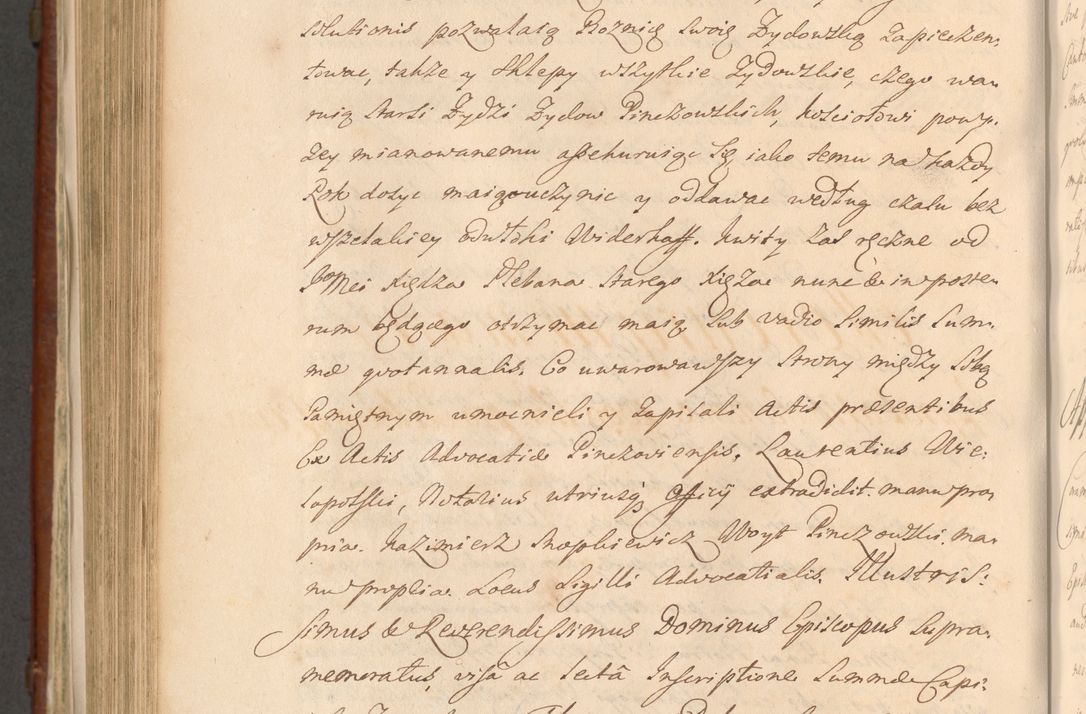 solutionis pozwalaią Boznicę swoię Zydowską zapieczen,
towac, także y Sklepy wszytkie Zydowskie, czego wa-
ruią Starsi Zydzi Zydow Pinczowskich, kosciołowi powy,
zey mianowanemu assekuruiąc się iako temu na każdy
Rok dosyc maią uczynic y oddawac według czasu bez
wszelakiey odwłoki Widerkaff. Kwity zas ręczne od
Xiędza Plebana Starego Xięża nunc & in poste-
rum będącego otrzymac maią sub vadio similis Sum-
mæ quotannalis. Co uwarowawszy Strony między sobą
Pamiętnym umocnieli y zapisali Actis præsentibus
Ex Actis Advocatiæ Pinczoviensis. Laurentius Wie:
lopolski, Notarius utriusq Officij extradidit. manu pro,
pria. Kazimierz Skopkiewicz Woyt Pinczowski. ma-
nu propria. Locus Sigilli Advocatialis. Illustris:
simus & Reverendissimus Dominus Episcopus supra,
memoratus, visâ ac lectâ Inscriptione Summæ Capi: